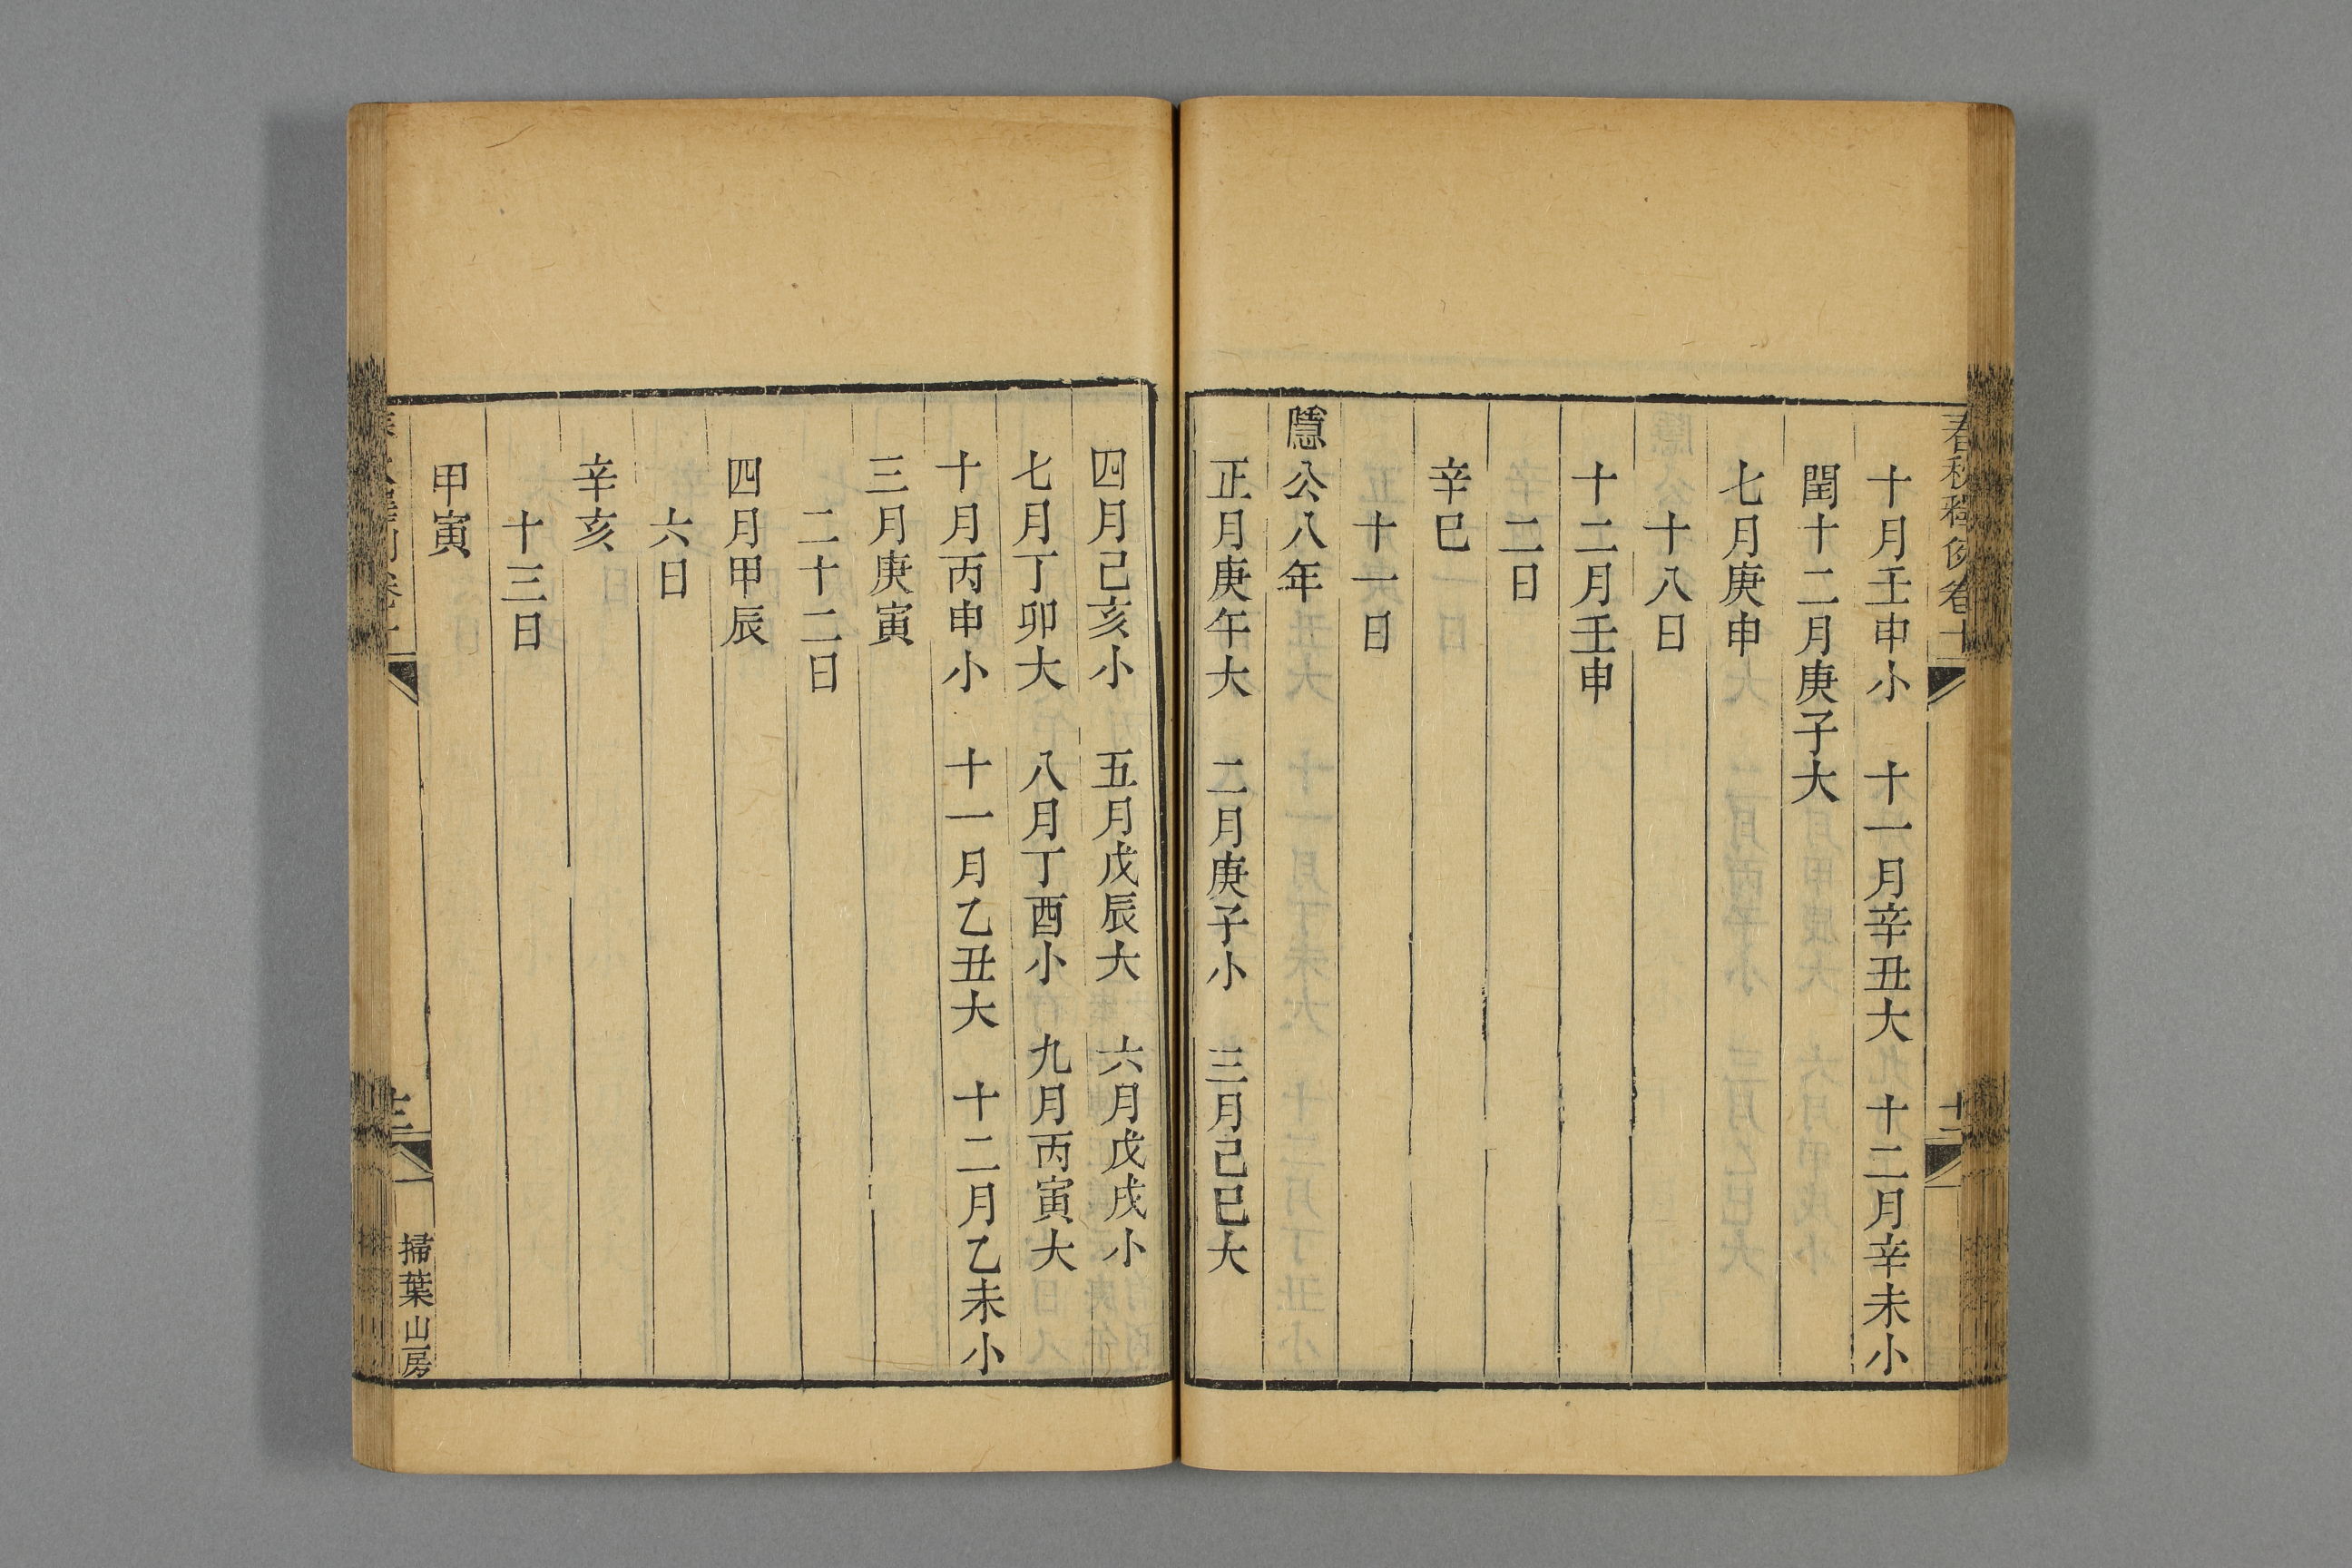 春秋釋例卷十
十二
十月壬申小　十一月辛丑大　十二月辛未小
閏十二月庚子大
七月庚申
十八日
十二月壬申
二日
辛巳
十一日
隱公八年
正月庚午大　二月庚子小　三月己巳大
四月己亥小　五月戊辰大　六月戊戌小
七月丁卯大　八月丁酉小　九月丙寅大
十月丙申小　十一月乙丑大　十二月乙未小
三月庚寅
二十二日
四月甲辰
六日
辛亥
十三日
甲寅
掃葉山房